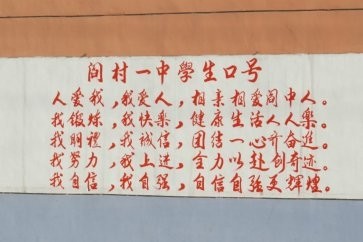 阎村一中學生口号
人爱我,我爱人,相亲相爱阎中人。
我锻炼,我快乐,健康生活人人樂。
我明禮,我诚信,团结一心齐奋進。
我努力,我上進,全力以赴创奇迹。
我自信,我自强,自信自强更辉煌。